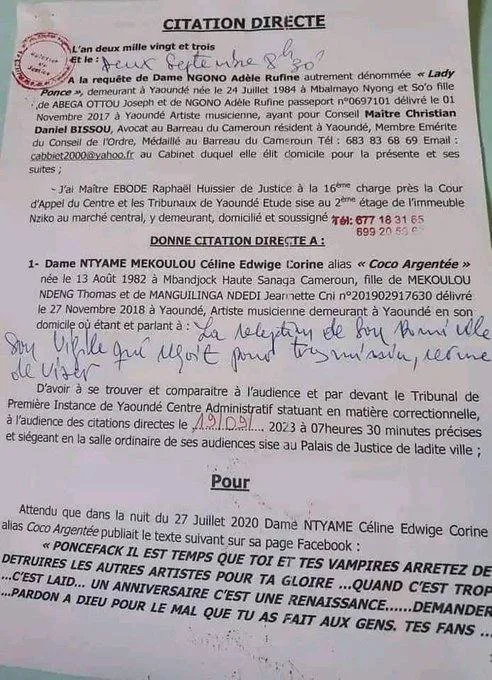 CITATION DIRECTE
L'an deux mille vingt et trois
Et le : Deux Septembre 8h 30'
A la requête de Dame NGONO Adèle Rufine autrement dénommée « Lady
Ponce», demeurant à Yaoundé née le 24 Juillet 1984 à Mbalmayo Nyong et So'o fille
de ABEGA OTTOU Joseph et de NGONO Adèle Rufine passeport n°0697101 délivré le
01 Novembre 2017 à Yaoundé Artiste musicienne, ayant pour Conseil Maître Christian
Daniel BISSOU, Avocat au Barreau du Cameroun résident à Yaoundé, Membre Emérite
du Conseil de l'Ordre, Médaillé au Barreau du Cameroun Tél : 683 83 68 69 Email :
cabbiet2000@yahoo.fr au Cabinet duquel elle élit domicile pour la présente et ses
suites ;
- J'ai Maître EBODE Raphaël Huissier de Justice à la 16ème charge près la Cour
d'Appel du Centre et les Tribunaux de Yaoundé Etude sise au 2ème étage de l'immeuble
Nziko au marché central, y demeurant, domicilié et soussigné Tél: 677 18 31 65
699 20 59
DONNE CITATION DIRECTE A :
1- Dame NTYAME MEKOULOU Céline Edwige Corine alias « Coco Argentée »
née le 13 Août 1982 à Mbandjock Haute Sanaga Cameroun, fille de MEKOULOU
NDENG Thomas et de MANGUILINGA NDEDI Jeannette Cni n°201902917630 délivré
le 27 Novembre 2018 à Yaoundé, Artiste musicienne demeurant à Yaoundé en son
domicile où étant et parlant à : La réception de son domicile
Son vigile qui reçoit pour transmission, refuse
de viser
D'avoir à se trouver et comparaître à l'audience et par devant le Tribunal de
Première Instance de Yaoundé Centre Administratif statuant en matière correctionnelle,
à l'audience des citations directes le 19/09/ 2023 à 07heures 30 minutes précises
et siégeant en la salle ordinaire de ses audiences sise au Palais de Justice de ladite ville ;
Pour
Attendu que dans la nuit du 27 Juillet 2020 Dame NTYAME Céline Edwige Corine
alias Coco Argentée publiait le texte suivant sur sa page Facebook :
« PONCEFACK IL EST TEMPS QUE TOI ET TES VAMPIRES ARRETEZ DE
DETRUIRES LES AUTRES ARTISTES POUR TA GLOIRE ...QUAND C'EST TROP
...C'EST LAID... UN ANNIVERSAIRE C'EST UNE RENAISSANCE......DEMANDER
...PARDON A DIEU POUR LE MAL QUE TU AS FAIT AUX GENS. TES FANS ...